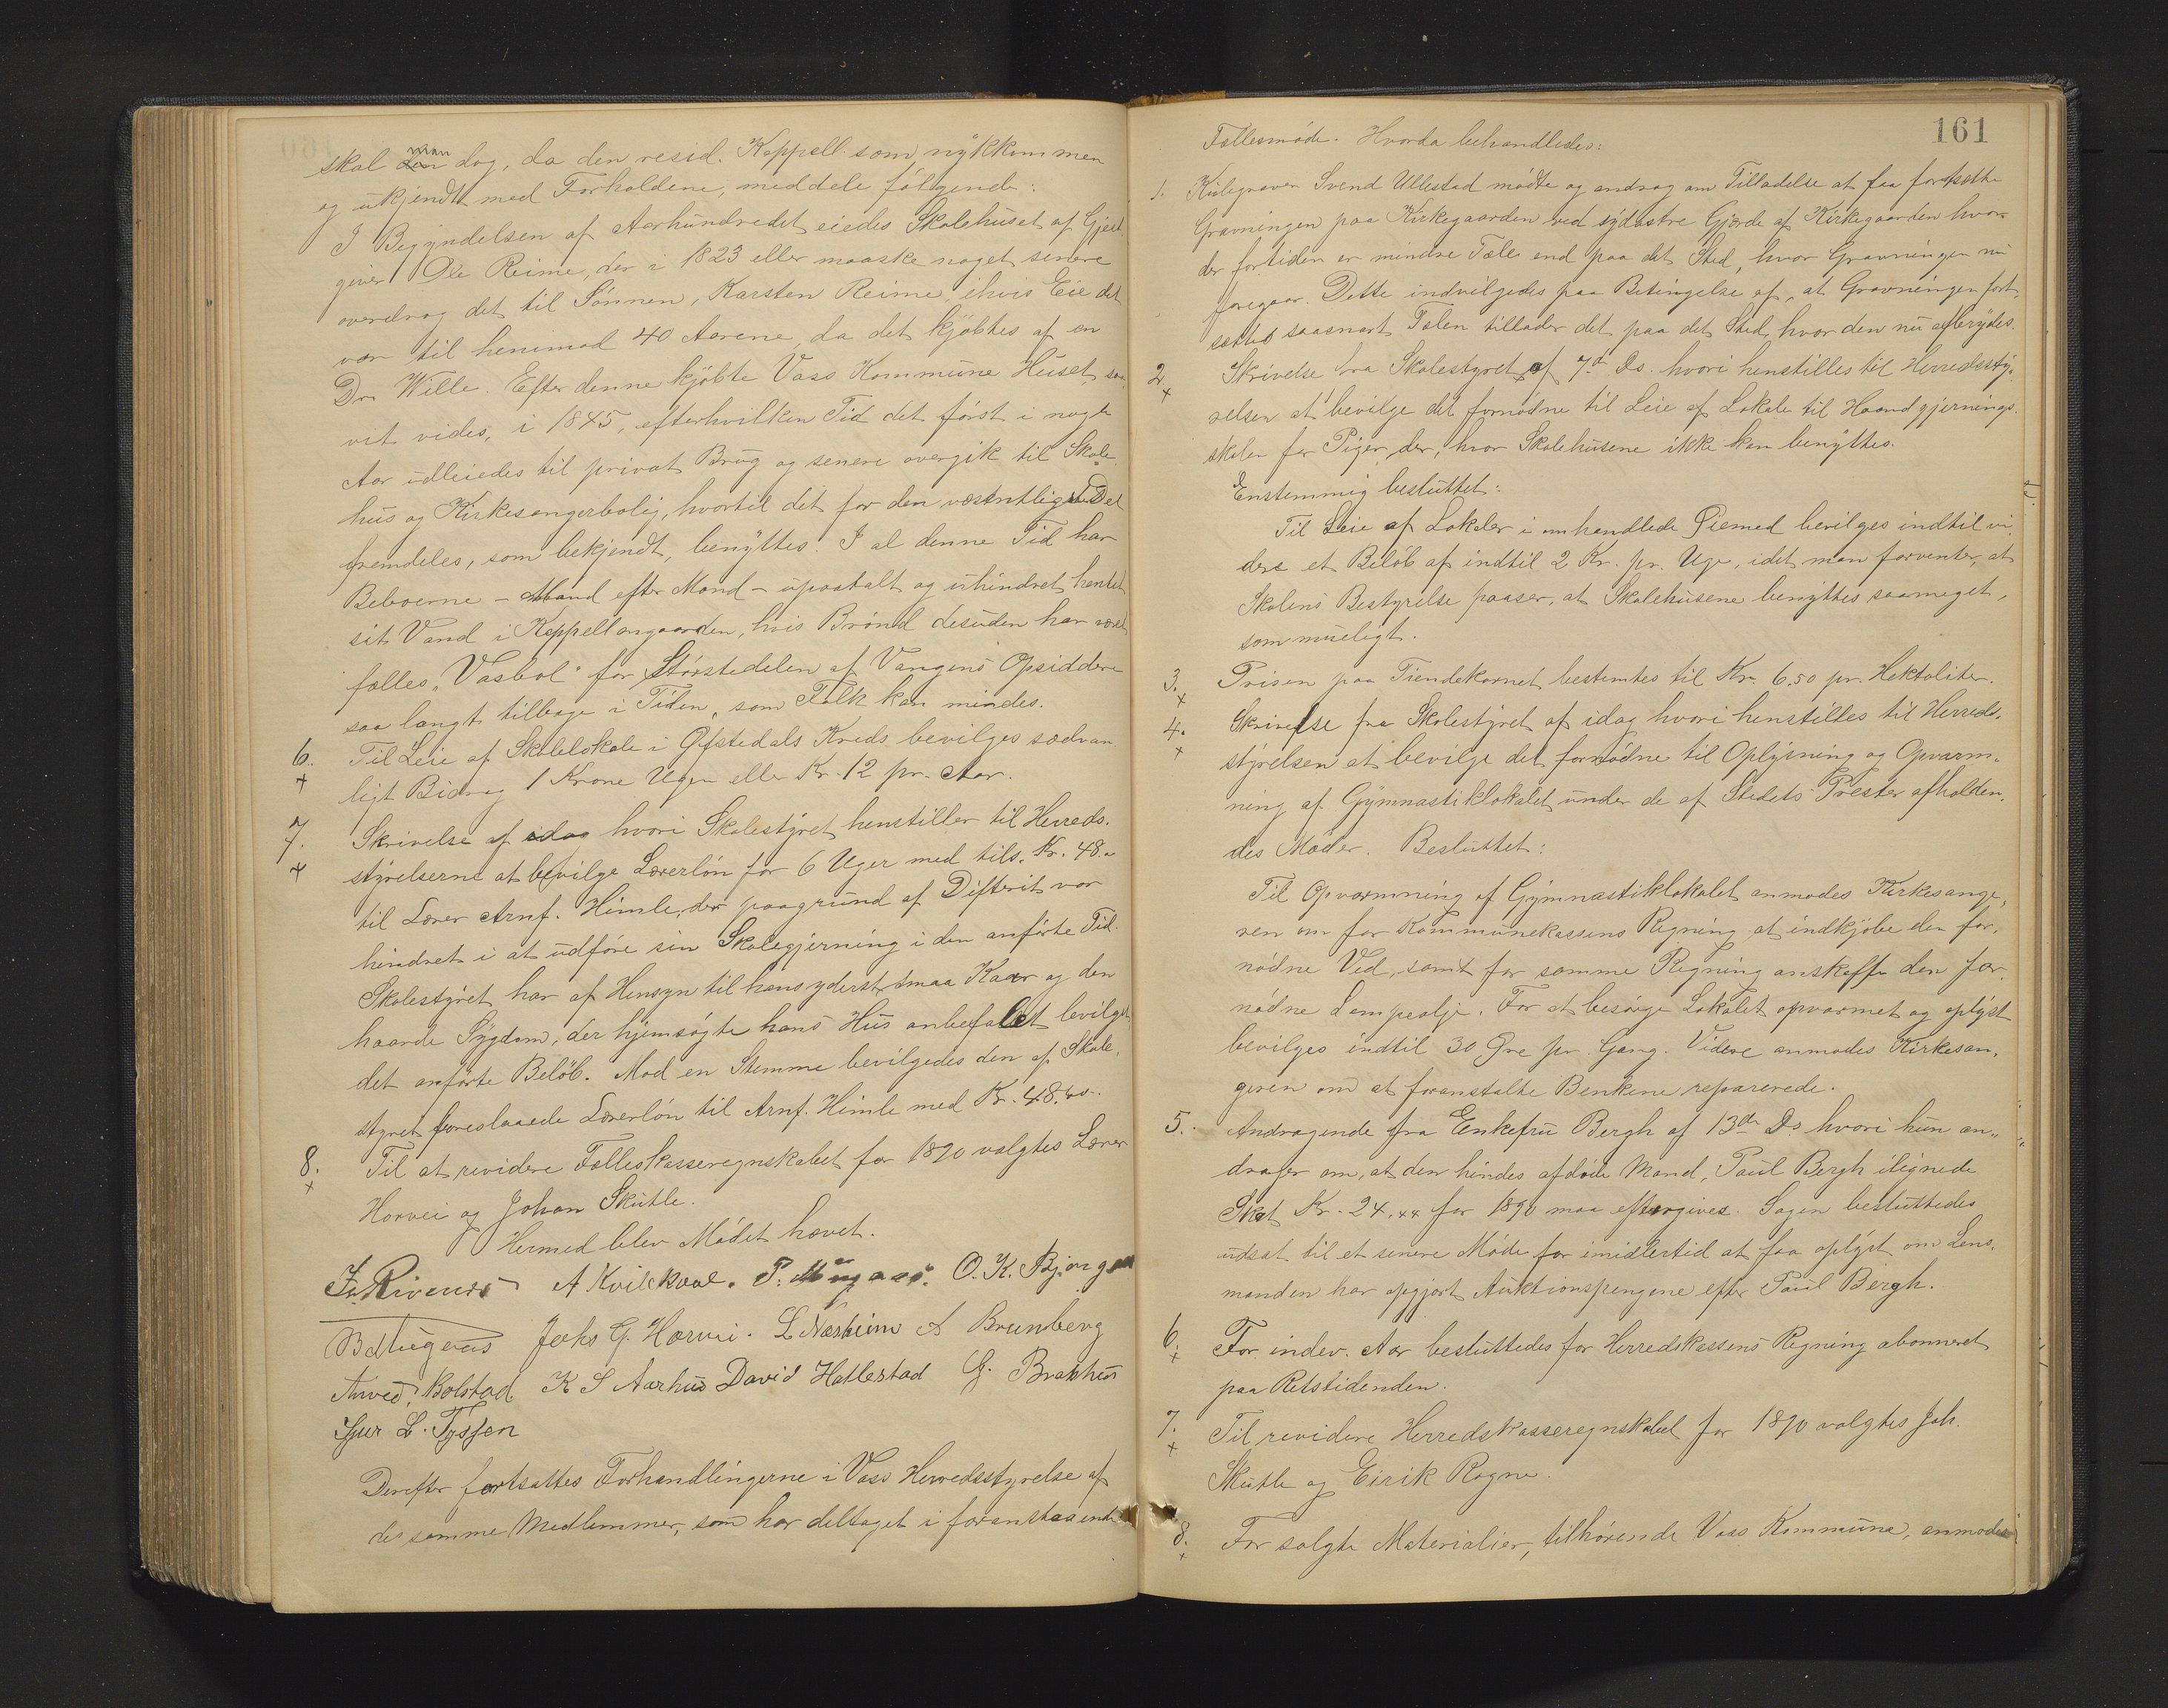 skal man dog, da den resid. Kappell. som nykkommen
og ukjendt med Forholdene, meddele følgende:
I Begyndelsen af Aarhundredet eiedes Skolehuset af Gjest-
giver Ole Reime, der i 1823 eller maaske noget senere
overdrog det til Sønnen, Karsten Reime, i hvis Eie det
var til henimod 40 Aarene, da det kjøbtes af en
Dr. Wille. Efter denne kjøbte Voss Kommune Huset, saa-
vit vides, i 1845, efter hvilken Tid det først i nogle
Aar udleiedes til privat Brug og senere overgik til Skole-
hus og Kirkesangerbolig, hvortil det for den væsentligste Del
fremdeles, som bekjendt, benyttes. I al denne Tid har
Beboerne – Mand efter Mand – upaatalt og uhindret hentet
sit Vand i Kappellangaarden, hvis Brønd desuden har været
fælles „Vasbol" for Størstedelen af Vangens Opsiddere
saa langt tilbage i Tiden, som Folk kan mindes.
6. Til Leie af Skolelokale i Øfstedals Kreds bevilges sædvan-
ligt Bidrag 1 Krone Ugen eller Kr. 12 pr. Aar.
7. Skrivelse af idag hvori Skolestyret henstiller til Herreds-
styrelserne at bevilge Lærerløn for 6 Uger med tils. Kr. 48.-
til Lærer Arnf. Himle, der paagrund af Difterit var
hindret i at udføre sin Skolegjerning i den anførte Tid.
Skolestyret har af Hensyn til hans yderst smaa Kaar og den
haarde Sygdom, der hjemsøgte hans Hus anbefalet bevilget
det anførte Beløb. Mod en Stemme bevilgedes den af Skole-
styret foreslaaede Lærerløn til Arnf. Himle med Kr. 48.00.
8. Til at revidere Fælleskasseregnskabet for 1890 valgtes Lærer
Horvei og Johan Skutle.
Hermed blev Mødet hævet.
A Kvilekval. O. K. Bjørge
Joths G. Horvei. L Næsheim A Brunberg
Bolstad K S Aarhus David Hatlestad G. Brakhus
Sjur L. Tyssen
Derefter fortsattes Forhandlingerne i Voss Herredsstyrelse af
de samme Medlemmer, som har deltaget i foranstaaende
161
Fællesmøde. Hvorda behandledes:
1. Kulegraver Svend Ullestad mødte og androg om Tilladelse at faa fortsætte
Gravningen paa Kirkegaarden ved sydøstre Gjærde af Kirkegaarden hvor
der fortiden er mindre Tæle end paa det Sted, hvor Gravningen nu
foregaar. Dette indvilgedes paa Betingelse af, at Gravningen fort-
sættes saasnart Tælen tillader det paa det Sted, hvor den nu afbrydes.
2. Skrivelse fra Skolestyret af 7de Ds. hvori henstilles til Herredssty-
relsen at bevilge det fornødne til Leie af Lokale til Haandgjernings-
skolen for Piger der, hvor Skolehusene ikke kan benyttes.
Enstemmig besluttet:
Til Leie af Lokaler i omhandlede Øiemed bevilges indtil vi-
dere et Beløb af indtil 2 Kr. pr. Uge, idet man forventer, at
Skolens Bestyrelse paaser, at Skolehusene benyttes saameget,
som mueligt.
3. Prisen paa Tiendekornet bestemtes til Kr. 6.50 pr. Hektoliter.
4. Skrivelse fra Skolestyret af idag hvori henstilles til Herreds-
styrelsen at bevilge det fornødne til Oplysning og Opvarm-
ning af Gymnastiklokalet under de af Stedets Prester afholden-
des Møder. Besluttet:
Til Opvarmning af Gymnastiklokalet anmodes Kirkesange-
ren om for Kommunekassens Regning at indkjøbe den for-
nødne Ved, samt for samme Regning anskaffe den for-
nødne Lampeolje. For at besørge Lokalet opvarmet og oplyst
bevilges indtil 30 Øre pr. Gang. Videre anmodes Kirkesan-
geren om at foranstalte Benkene reparerede.
5. Andragende fra Enkefru Bergh af 13de Ds hvori hun an-
drager om, at den hindes afdøde Mand, Paul Bergh ilignede
Skat Kr. 24,44 for 1890 maa eftergives. Sagen besluttedes
udsat til et senere Møde for imidlertid at faa oplyst om Lens-
manden har opgjort Auktionspengene efter Paul Bergh.
6. For indev. Aar besluttedes for Herredskassens Regning abonneret
paa Retstidenden.
7. Til revidere Herredskasseregnskabet for 1890 valgtes Joh.
Skutle og Eirik Rogne.
8. For solgte Materialier, tilhørende Voss Kommune, anmodes